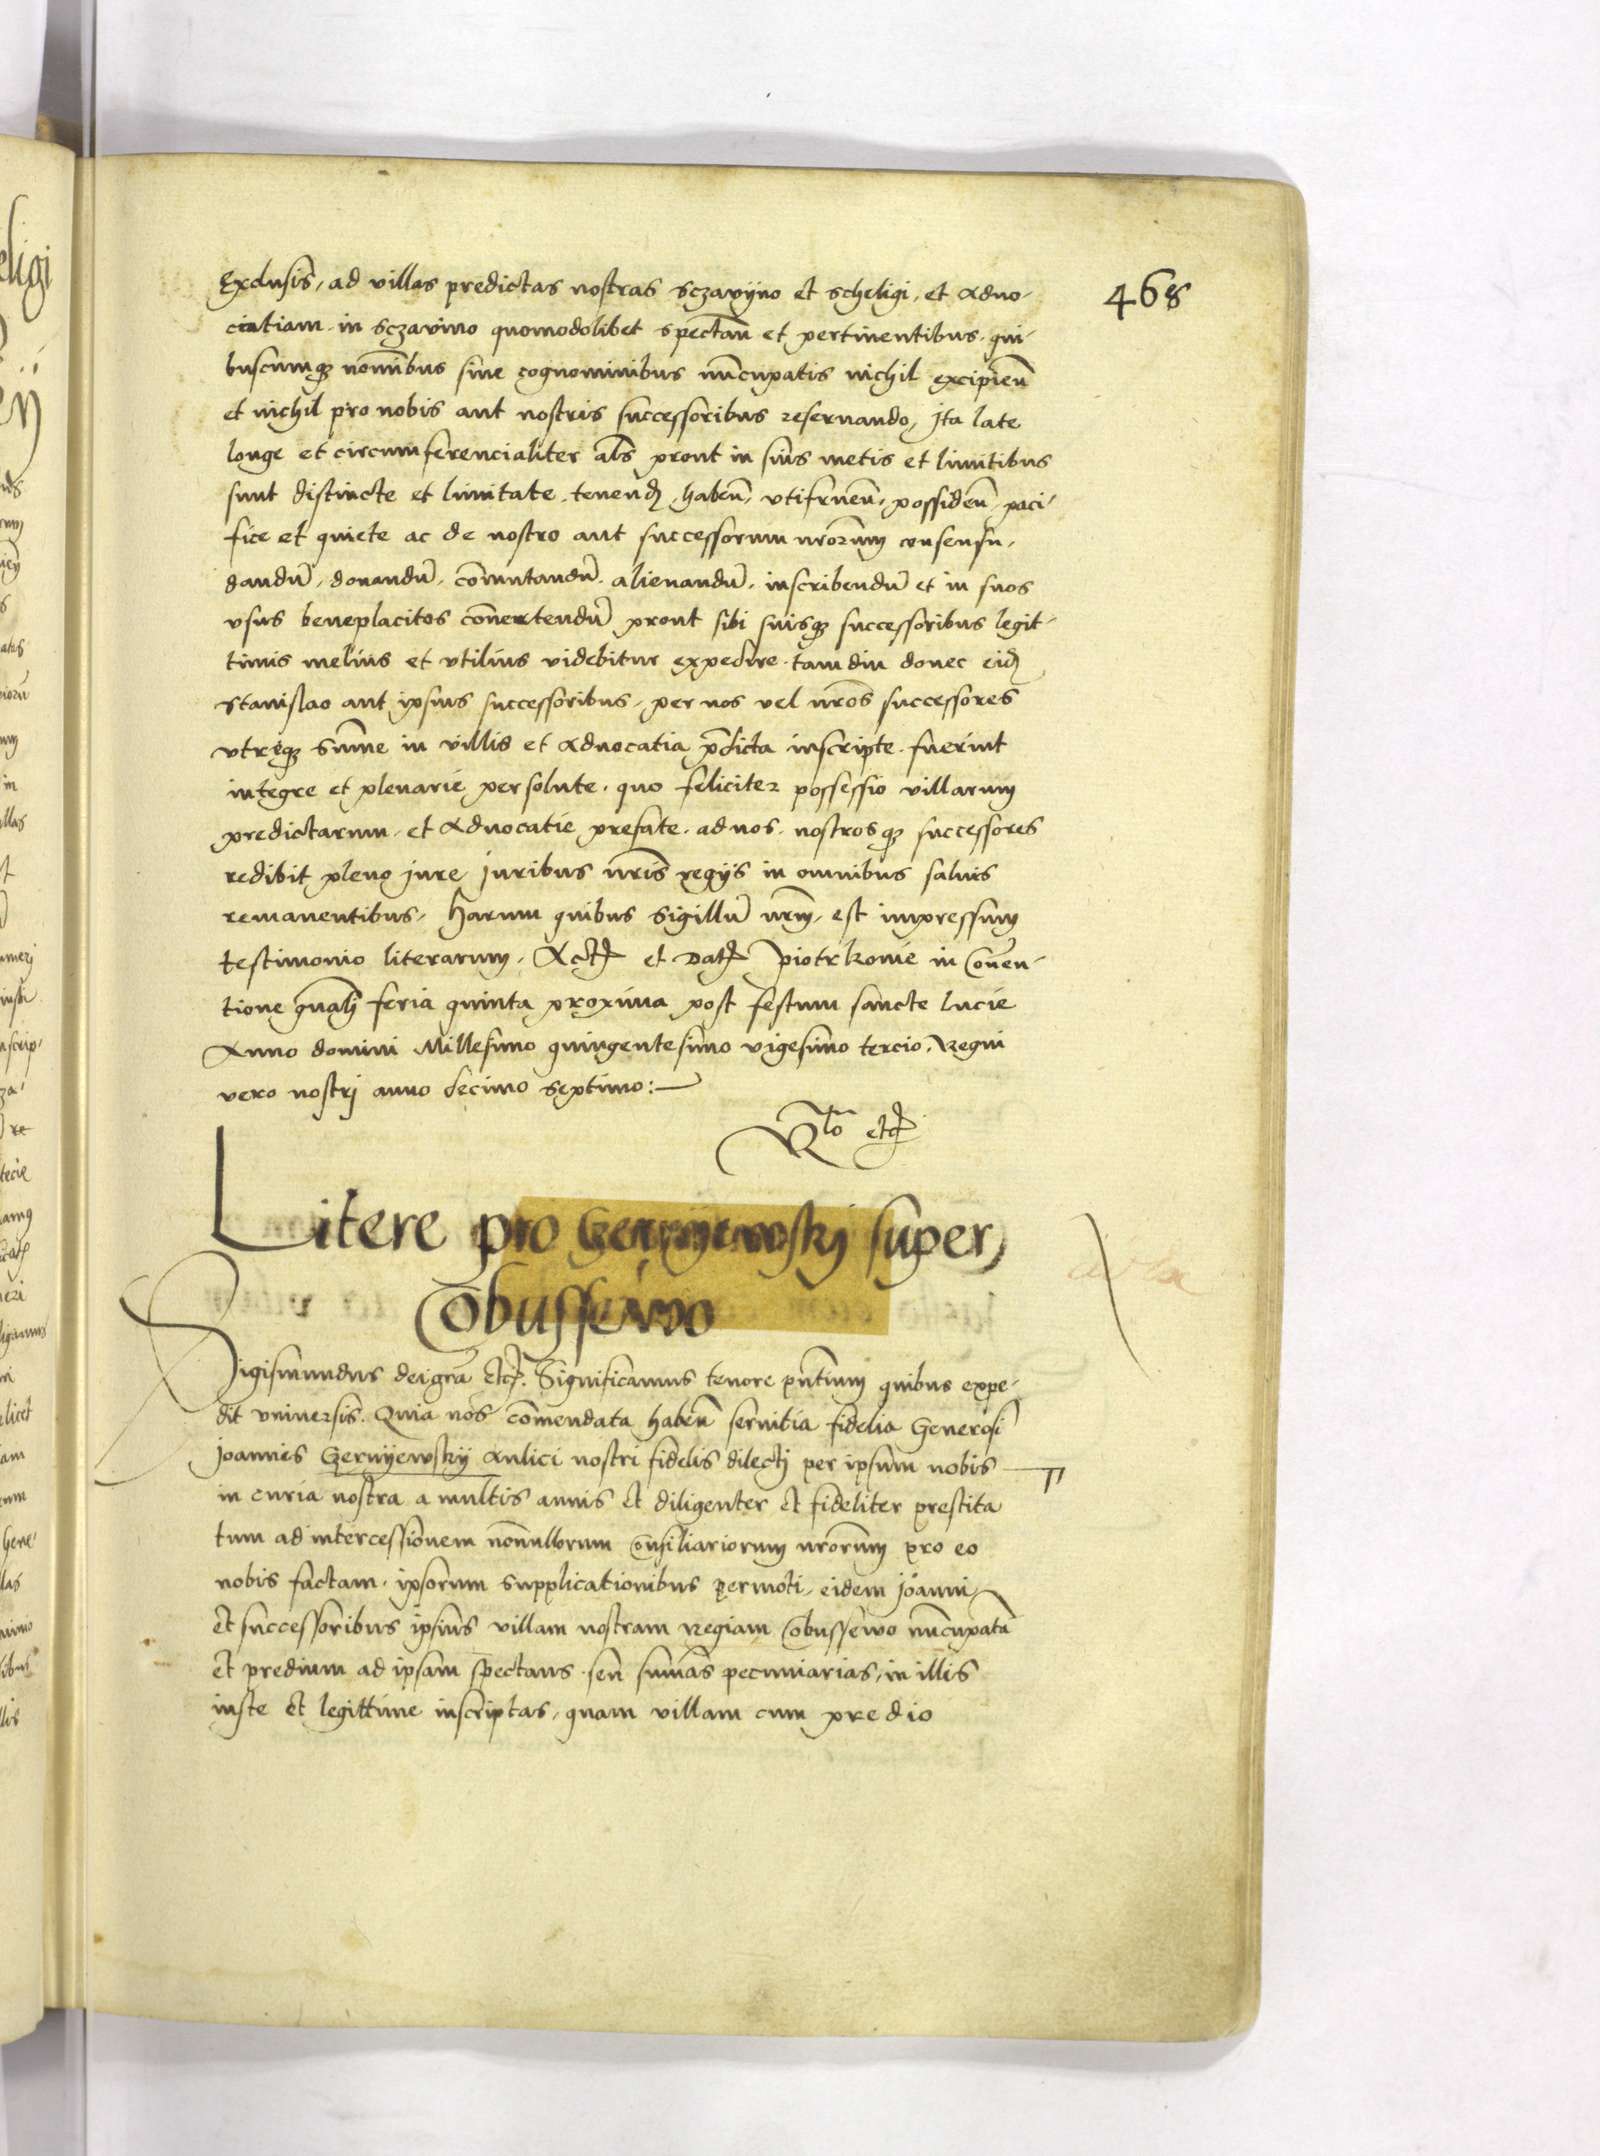 468
Exclusis, ad villas predictas nostras sczavyno et scheligi, et advo-
ciatiam in sczavino quomodolibet spectan̄ et pertinentibus, qui-
buscumq; nom̄inibus sive cognominibus nūncupatis nichil excipien̄
et nichil pro nobis aut nostris successoribus reservando, Ita late
longe et circumferencialiter al̄s prout in suis metis et limitibus
sunt distincte et limitate, tenend, haben̄, vtifruen̄, possiden̄, paci-
fice et quiete ac de nostro aut successorum nr̄orum consensu,
dandū, donandū, com̄utandū, alienandū, inscribendū et in suos
vsus beneplacitos con̄vertendū prout sibi suisq; successoribus legit-
timis melius et vtilius videbitur expedire, tam diu donec eid
Stanislao aut ipsius successoribus, per nos vel nr̄os successores
vtreq; sum̄e in villis et advocatia p̄dicta inscripte, fuerint
integre et plenarie persolute, quo feliciter possessio villarum
predictarum, et Advocatie prefate, ad nos, nostrosq; successores
redibit pleno jure, Juribus nr̄is regijs in omnibus salvis
remanentibus, Harum quibus Sigillū nr̄m, est impressum
testimonio literarum, Act et Dat piotrkovie in Conven-
tione gn̄ali feria quinta proxima post festum sancte Lucie
Anno domini Millesimo quingentesimo vigesimo tercio, Regni
vero nostri anno decimo septimo:—
R̄lo etc
Litere pro Czernyewskj super
Cobussewo
Sigismundus dei gr̄a etc. Significamus tenore pn̄tium quibus expe-
dit vniversis. Quia nos com̄endata haben̄ servitia fidelia Generosi
Joannis Czernyewsky Aulici nostri fidelis dilectj per ipsum nobis
in curia nostra a multis annis et diligenter et fideliter prestita
tum ad intercessionem non̄nullorum Consiliariorum nr̄orum pro eo
nobis factam, ipsorum supplicationibus permoti, eidem Joanni
et successoribus ipsius villam nostram Regiam Cobussewo nūncupatā
et predium ad ipsam spectans, seu sum̄as pecuniarias, in illis
iuste et legittime inscriptas, quam villam cum predio